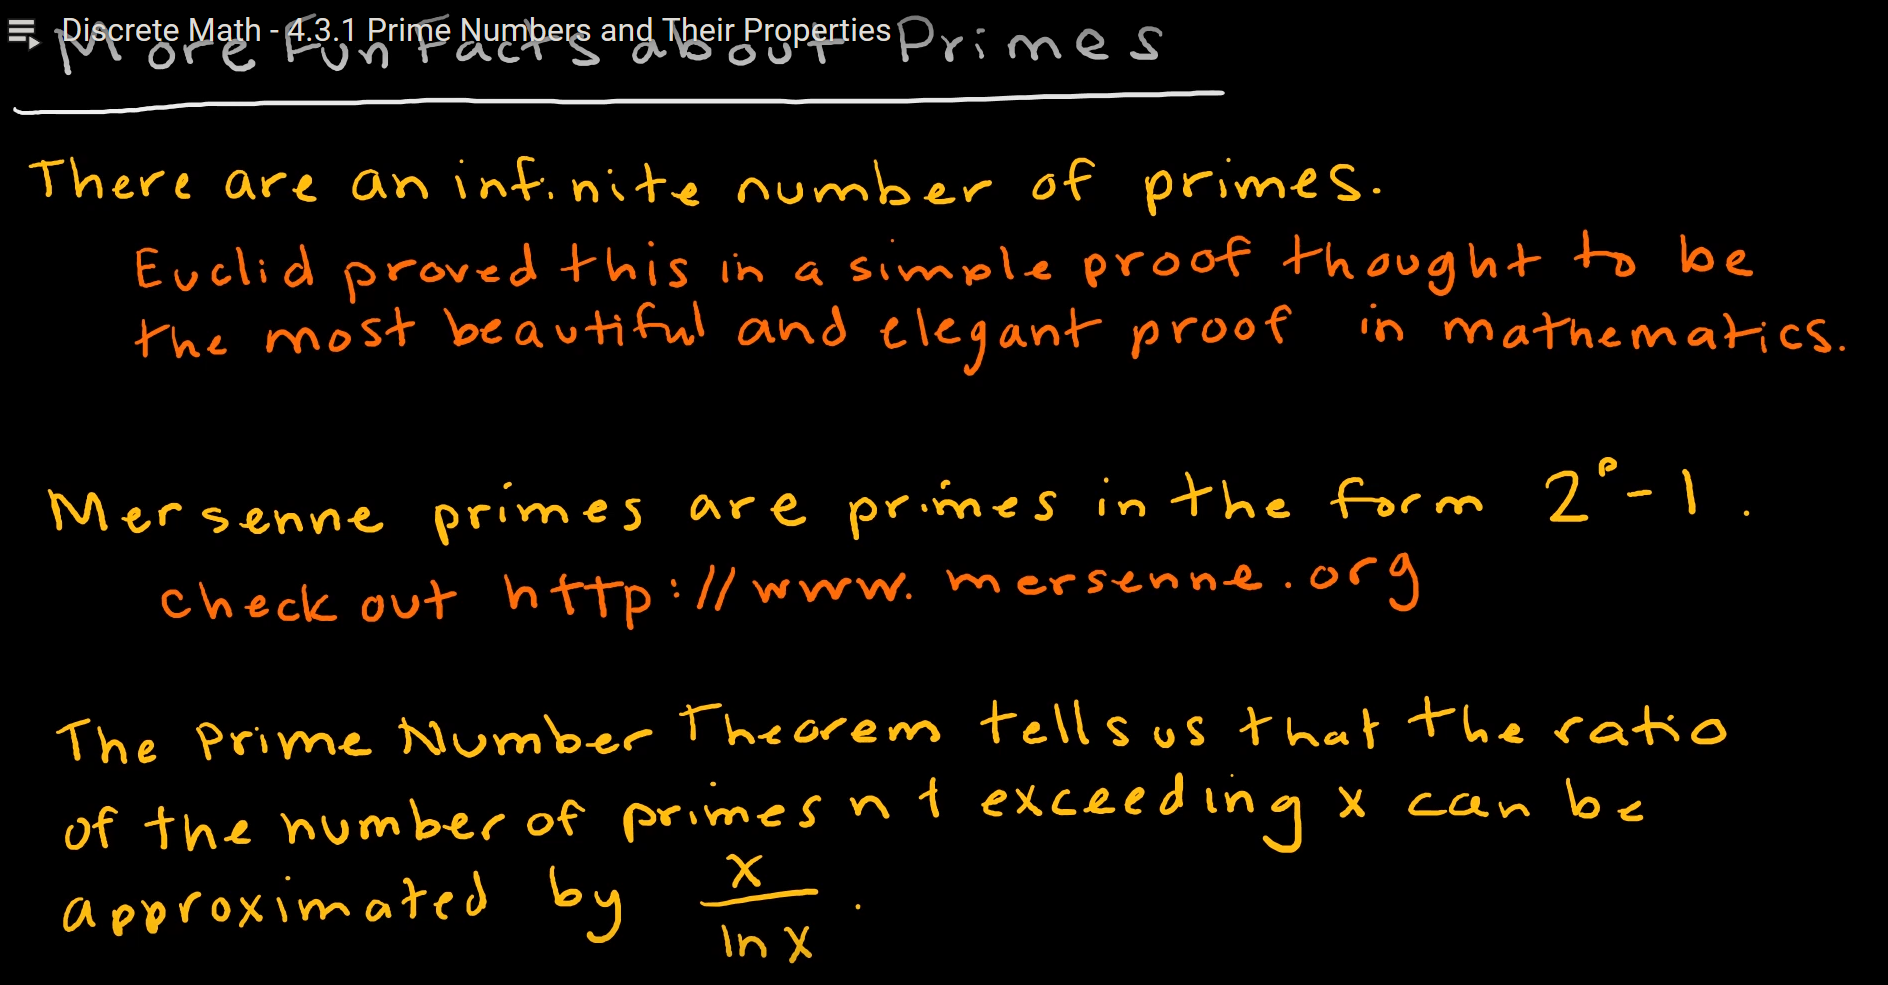 Discrete Math - 4.3.1 Prime Numbers and Their Properties
More Fun Facts about Primes
There are an infinite number of primes.
Euclid proved this in a simple proof thought to be
the most beautiful and elegant proof in mathematics.
Mersenne primes are primes in the form 2^p - 1.
check out http://www.mersenne.org
The Prime Number Theorem tells us that the ratio
of the number of primes n t exceeding x can be
approximated by x / ln x.